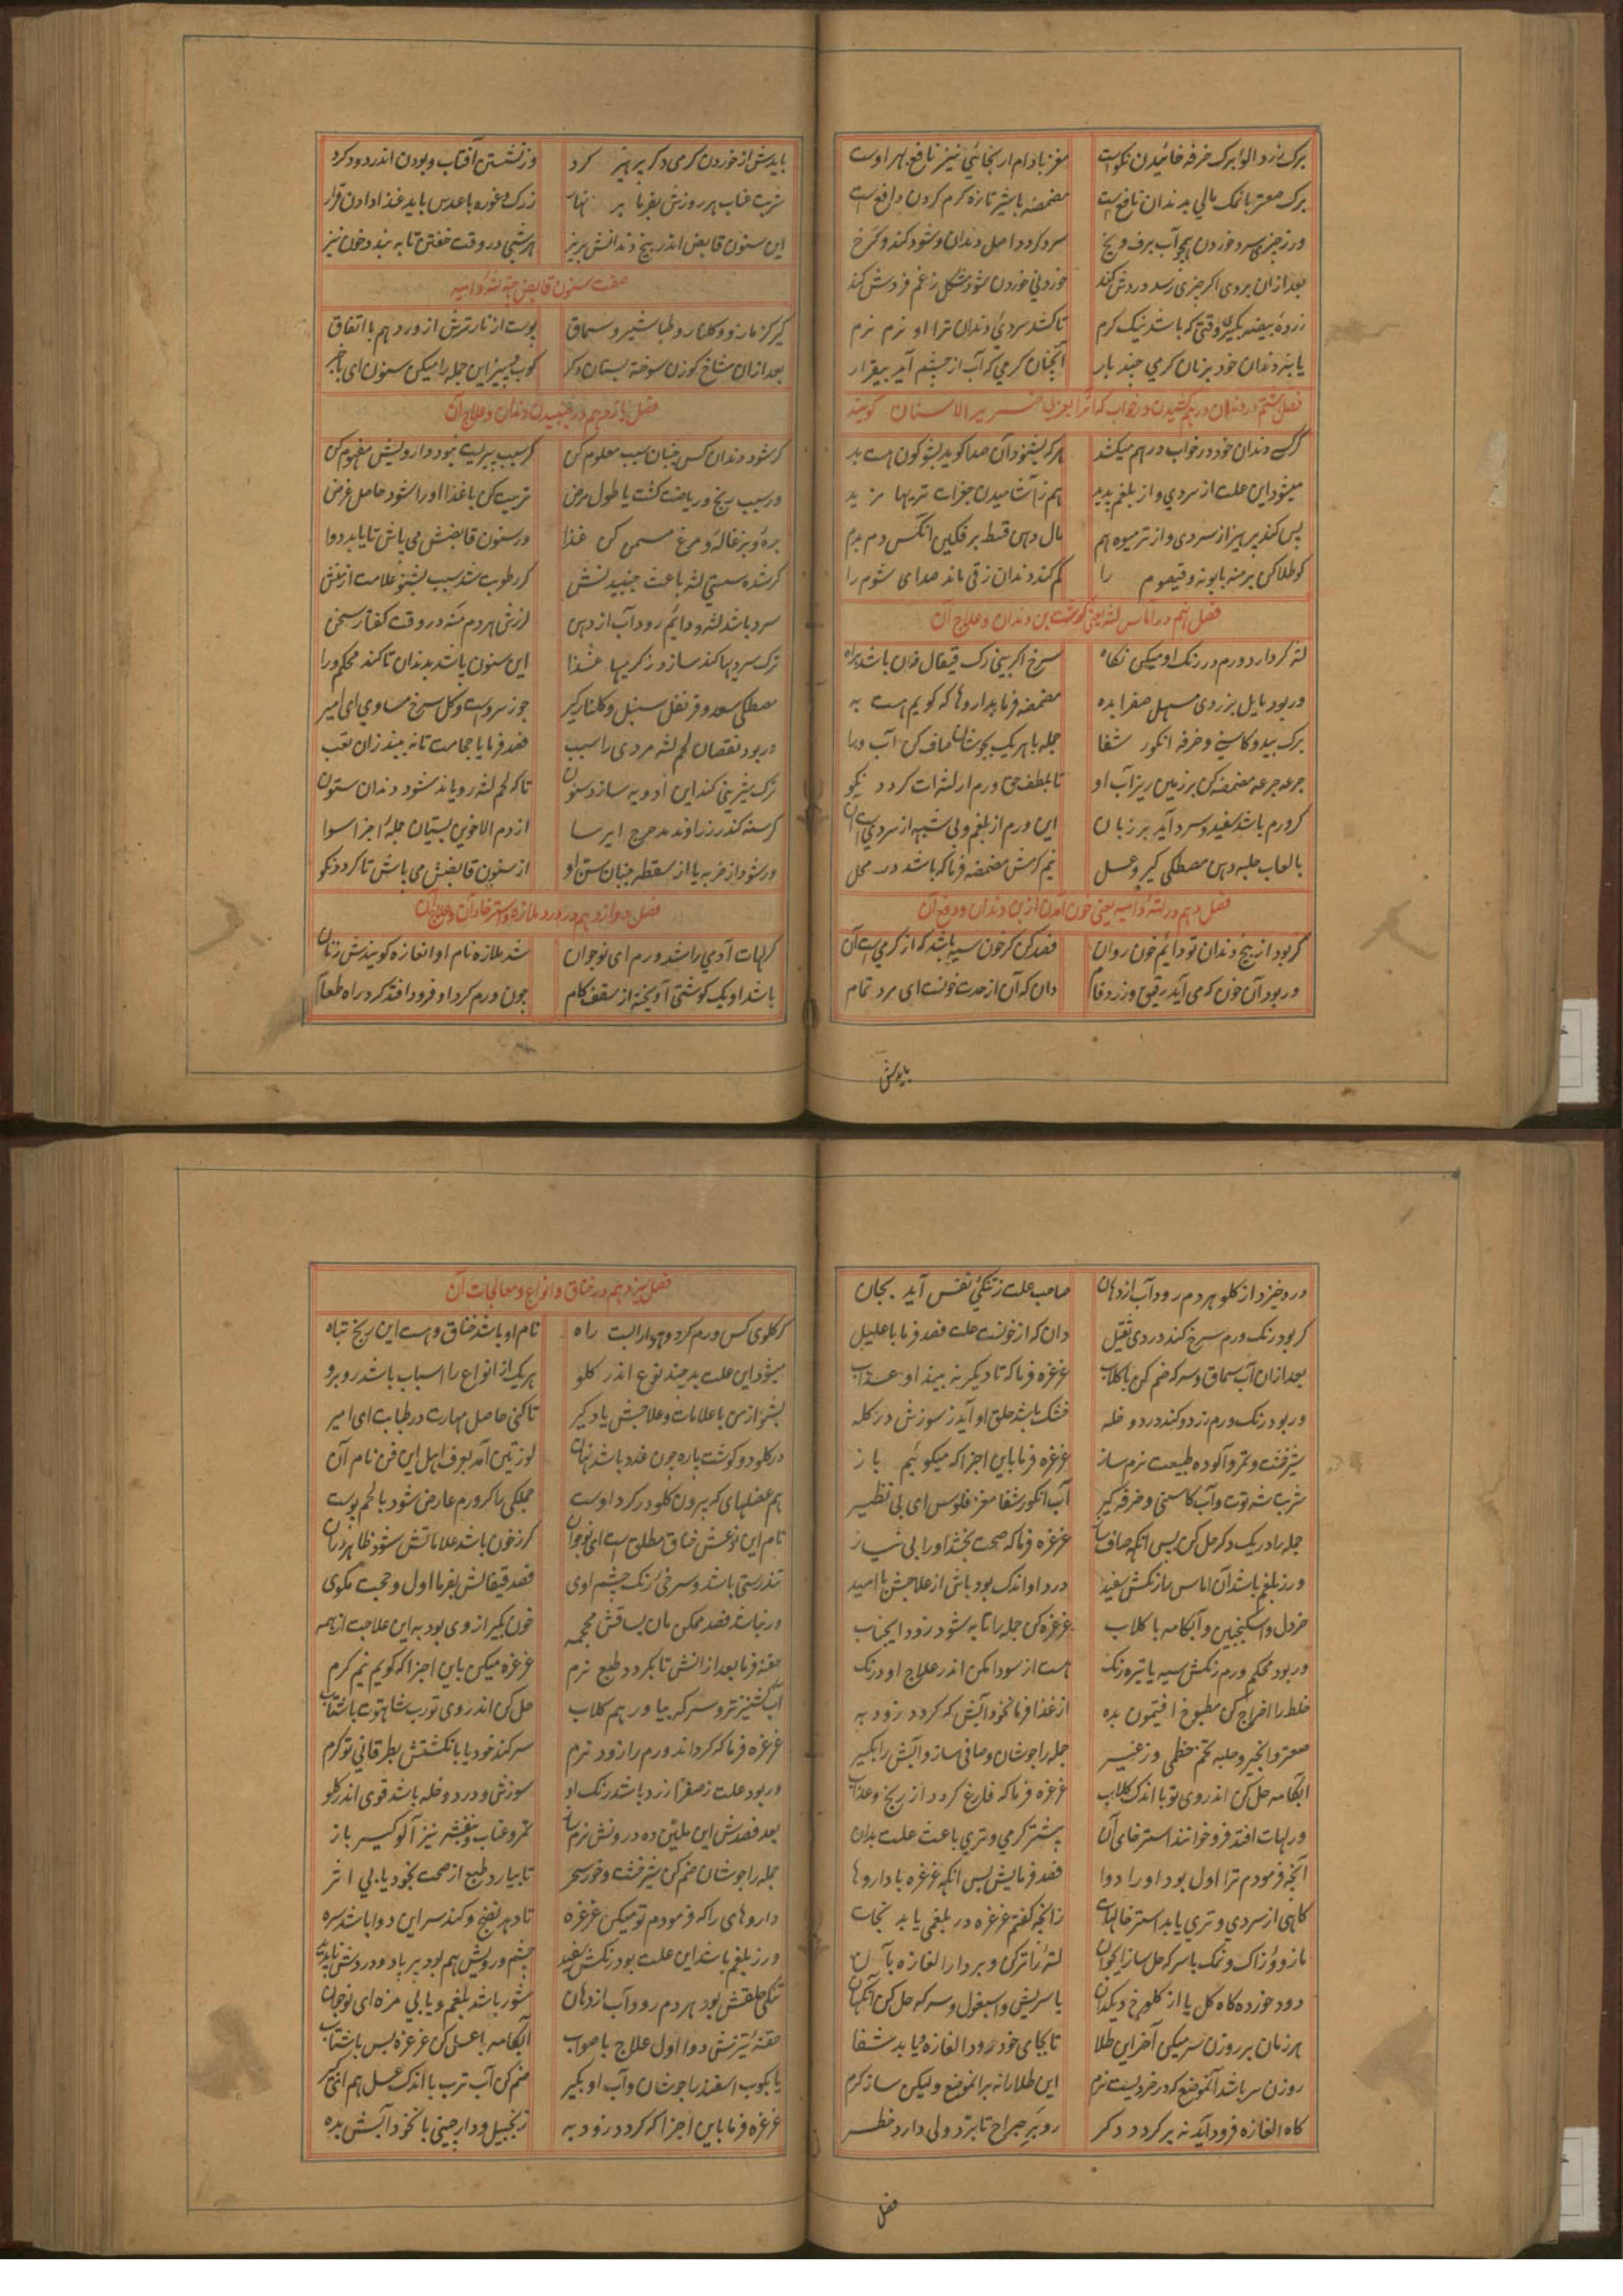 برک زرد الو ابرک خرفه خائیدن نکوست مغز بادام ار بخائی نیز نافع بهر اوست
برک صعتر با نمک مالی بدندان نافعست مضمضه با شیر تازه کرم کردن دافعست
ور ز چیزی سرد خوردن همچو آب برف و یخ سرد کردد اصل دندان و شود کند و کرخ
بعد ازان بروی اکر چیزی رسد دردش کند خوردنی خوردن شود مشکل ز غم فردش کند
زردهٔ بیضه بکیری وقتی که باشد نیک کرم تا کشد سردی دندان ترا او نرم نرم
یا بنه دندان خود بر نان کرمی چند بار آنچنان کرمی که آب از چشم آید بیقرار
فصل هشتم در دندان در هم کشیدن در خواب که آنرا بعربی صریر الاسنان کویند
کر کسی دندان خود در خواب در هم میکشد هر که بشنود آن صدا کوید بشو کون هست بد
میشود این علت از سردی و از بلغم پدید هم ز آشامیدن جغرات تریها مزید
پس کند پرهیز از سردی و از تر میوه هم مال دهن قسط بر فکین آنکس دم بدم
کو طلا کن برمنه بابونه و قیصوم را کم کند دندان زقی ماند صدای شوم را
فصل نهم در اماس لثه یعنی کوشت بن دندان و علاج آن
لثه کر دارد ورم در رنک او میکن نکاه سرخ اکر بینی رک قیفال خون باشد براه
ور بود مایل بزردی مسهل صفرا بده مضمضه فرما بداروها که کویم هست به
برک بید و کاسنی و خرفه انکور شفا جمله با هریک بجوشان صاف کن آب ورا
جرعه جرعه مضمضه کن بر زمین ریز آب او تا بلطف حق ورم از لثه‌ات کردد نکو
کر ورم باشد سفید و سرد آید بر زبان این ورم از بلغم و بی شبهه از سردیست آن
با لعاب حلبه دهن مصطکی کیر و عسل نیم کرمش مضمضه فرما که باشد در محل
فصل دهم در لثهٔ دامیه یعنی خون آمدن از بن دندان و دفع آن
کر بود از بیخ دندان تو دائم خون روان فصد کن کر خون سیه باشد که از کرمیست آن
ور بود آن خون که می آید رقیق و زرد فام دان که آن از حدت خونست ای مرد تمام
بایدش
بایدش از خوردن کرمی دکر پرهیز کرد وز نشستن آفتاب و بودن اندر دود کرد
شربت عناب هر روزش بفرما بر نهار زرک و غوره با عدس باید غذا دادن قرار
این سنون قابض اندر بیخ دندانش بریز هر شبی در وقت خفتن تا به بندد خون نیز
صفت سنون قابض جهة لثهٔ دامیه
کیر کزمازو و کلنار و طباشیر و سماق پوست از نار ترش از ورد هم با اتفاق
بعد ازان شاخ کوزن سوخته بستان دکر کوب و بیز این جمله را میکن سنون ای باخبر
فصل یازدهم در جنبیدن دندان و علاج آن
کر شود دندان کس جنبان سبب معلوم کن کر سبب پیریست نبود دارویش مفهوم کن
ور سبب رنج و ریاضت کشت یا طول مرض تربیت کن با غذا او را شود حاصل غرض
بره و بزغاله و مرغ مسمن کن غذا ور سنون قابضش می پاش تا یابد دوا
کر شده سستی لثه باعث جنبیدنش کر رطوبت شد سبب بشنو علامت از منش
سرد باشد لثه و دائم رود آب از دهن لرزشی هر دم کند در وقت کفتار سخن
ترک سردیها کند سازد ز کرمیها غذا این سنون پاشد بدندان تا کند محکم ورا
مصطکی سعد و قرنفل سنبل و کلنار کیر جوز سروست و کل سرخ مساوی ای امیر
ور بود نقصان لحم لثه مر وی را سبب فصد فرما یا حجامت تا نه بیند زان تعب
ترک شیرینی کند این ادویه سازد سنون تا که لحم لثه رویاند شود دندان ستون
کرسنه کندر زراوند مدحرج ایرسا از دم الاخوین بستان جملهٔ اجزا سوا
ور شود از ضربه یا از سقطه جنبان سن او از سنون قابضش می پاش تا کردد نکو
فصل دوازدهم در ورم ملازه و استرخاء آن و علاج آن
کر لهات آدمی را شد ورم ای نوجوان شد ملازه نام او الغازه کویندش زنان
باشد او یک کوشتی آویخته از سقف کام چون ورم کرد او فرود افتد کرد راه طعام
درد خیزد از کلو هر دم رود آب از دهان صاحب علت ز تنکی نفس آید بجان
کر بود رنک ورم سرخ کند دردی ثقیل دان که از خونست علت فصد فرما با علیل
بعد ازان آب سماق و سرکه ضم کن با کلاب غرغره فرما که تا دیکر نه بیند او عذاب
ور بود رنک ورم زرد و کند درد و خله خشک باشد حلق او آید ز سوزش در کله
شیرخشت و تمر و آلو ده طبیعت نرم ساز غرغره فرما باین اجزا که میکوئیم باز
شربت شه توت و آب کاسنی و خرفه کیر آب انکور شفا مغز فلوس ای بی نظیر
جمله را در یک دکر حل کن پس آنکه صاف ساز غرغره فرما که صحت بخشد او را بی نیاز
ور ز بلغم باشد آن اماس باز نکش سفید درد او اندک بود باش از علاجش با امید
خردل و اسکنجبین و آبکامه با کلاب غرغره کن جمله را تا به شود زود اینجناب
ور بود محکم ورم رنکش سیه یا تیره رنک هست از سودا مکن اندر علاج او درنک
خلط را اخراج کن مطبوخ افتیمون بده از غذا فرما نخود آبش که کردد زود به
صعتر و انجیر و حلبه تخم خطمی ور زغیر جمله را جوشان و صافی ساز و آبش را بکیر
آبکامه حل کن اندر وی تو با اندک کلاب غرغره فرما که فارغ کردد از رنج و عذاب
ور لهات افتد فرو خوانند استرخای آن بیشتر کرمی و تری باعث علت بدان
آنچه فرمودم ترا اول بود او را دوا فصد فرمایش پس آنکه غرغره با داروها
کاهی از سردی و تری یابد استرخا لهات زانچه کفتم غرغره در بلغمی یابد نجات
مازو و زاک و نمک با سرکه حل ساز ای جوان لته را تر کن و بردار الغازه بآن
دود خورده کاه کل یا از کلوخ دیکدان یا سریش و اسبغول و سرکه حل کن آنکهان
هر زمان بر روزن سر میکن آخر این طلا تا بجای خود رود الغازه و یابد شفا
روزن سر باشد آنموضع که در خردیست نرم این طلا را نه بر انموضع ولیکن ساز کرم
کاه الغازه فرود آید نه برکردد دکر رو بر جراح تا برد ولی دارد خطر
فصل
فصل سیزدهم در خناق و انواع و معالجات آن
کر کلوی کس ورم کرد و هوا را بست راه نام او باشد خناق و هست این رنج تباه
میشود این علت بد چند نوع اندر کلو هر یک از انواع را اسباب باشد روبرو
بشنو از من با علامات و علاجش یاد کیر تا کنی حاصل مهارت در طبابت ای امیر
در کلو دو کوشت پاره چون غدد باشد نهان لوزتین آمد بعرف اهل این فن نام آن
هم عضلهای که بیرون کلو در کرد اوست جملکی را کر ورم عارض شود با لحم پوست
نام این نوعش خناق مطلق است ای نوجوان کر ز خون باشد علاماتش شود ظاهر در آن
تندرستی باشد و سرخی رنک چشم اوی فصد قیفالش بفرما اول و حجت مکوی
ور نباشد فصد ممکن مان بساقش محجمه خون بکیر از وی بود به این علاجت از همه
حقنه فرما بعد ازانش تا بکردد طبع نرم غرغره میکن باین اجزا که کویم نیم کرم
آب کشنیز تر و سرکه بیاور هم کلاب حل کن اندر وی تو رب شاهتوت با شتاب
غرغره فرما که کرداند ورم را زود نرم سر کند خود یا بانکشتش بطرقانی تو کرم
ور بود علت ز صفرا زرد باشد رنک او سوزش و درد و خله باشد قوی اندر کلو
بعد فصدش این ملین ده درونش نرم ساز تمر و عناب و بنفشه نیز آلو کیر باز
جمله را جوشان ضم کن شیرخشت و خور سحر تا بیارد طبع از صحت بخود یابی اثر
داروهای را که فرمودم تو میکن غرغره تا دهد نضج و کند سر این دوا باشد سره
ور ز بلغم باشد این علت بود رنکش سفید چشم و رویش هم بود پر باد و دردش ناپدید
تنکی حلقش بود هر دم رود آب از دهان شور باشد بلغم و یا بی مزه ای نوجوان
حقنهٔ تیزش دوا اول علاج با صواب آبکامه با عسل کن غرغره پس با شتاب
یا بکوب اسفند را جوشان و آب او بکیر ضم کن آب ترب با اندک عسل هم انجیر
غرغره فرما باین اجزا که کردد زود به زنجبیل و دارچینی با نخود آبش بده